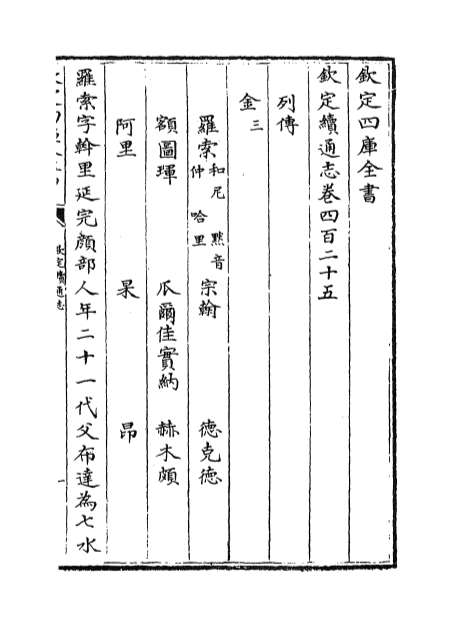 欽定四庫全書
欽定續通志卷四百二十五
列傳
金三
羅索 和尼 仲 默音 哈里 宗翰 德克德
額圖琿 瓜爾佳實納 赫木頗
阿里 杲 昂
羅索字斡里延完顔部人年二十一代父布達為七水
欽定續通志
一